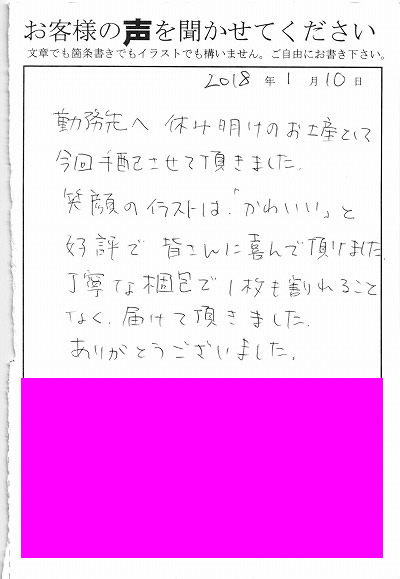 お客様の声を聞かせてください
文章でも箇条書きでもイラストでも構いません。ご自由にお書き下さい。
2018 年 1 月 10 日
勤務先へ 休み明けのお土産として
今回手配させて頂きました.
笑顔のイラストは.「かわいい」と
好評で 皆さんに喜んで頂けました.
丁寧な梱包で 1枚も割れること
なく.届けて頂きました.
ありがとうございました。